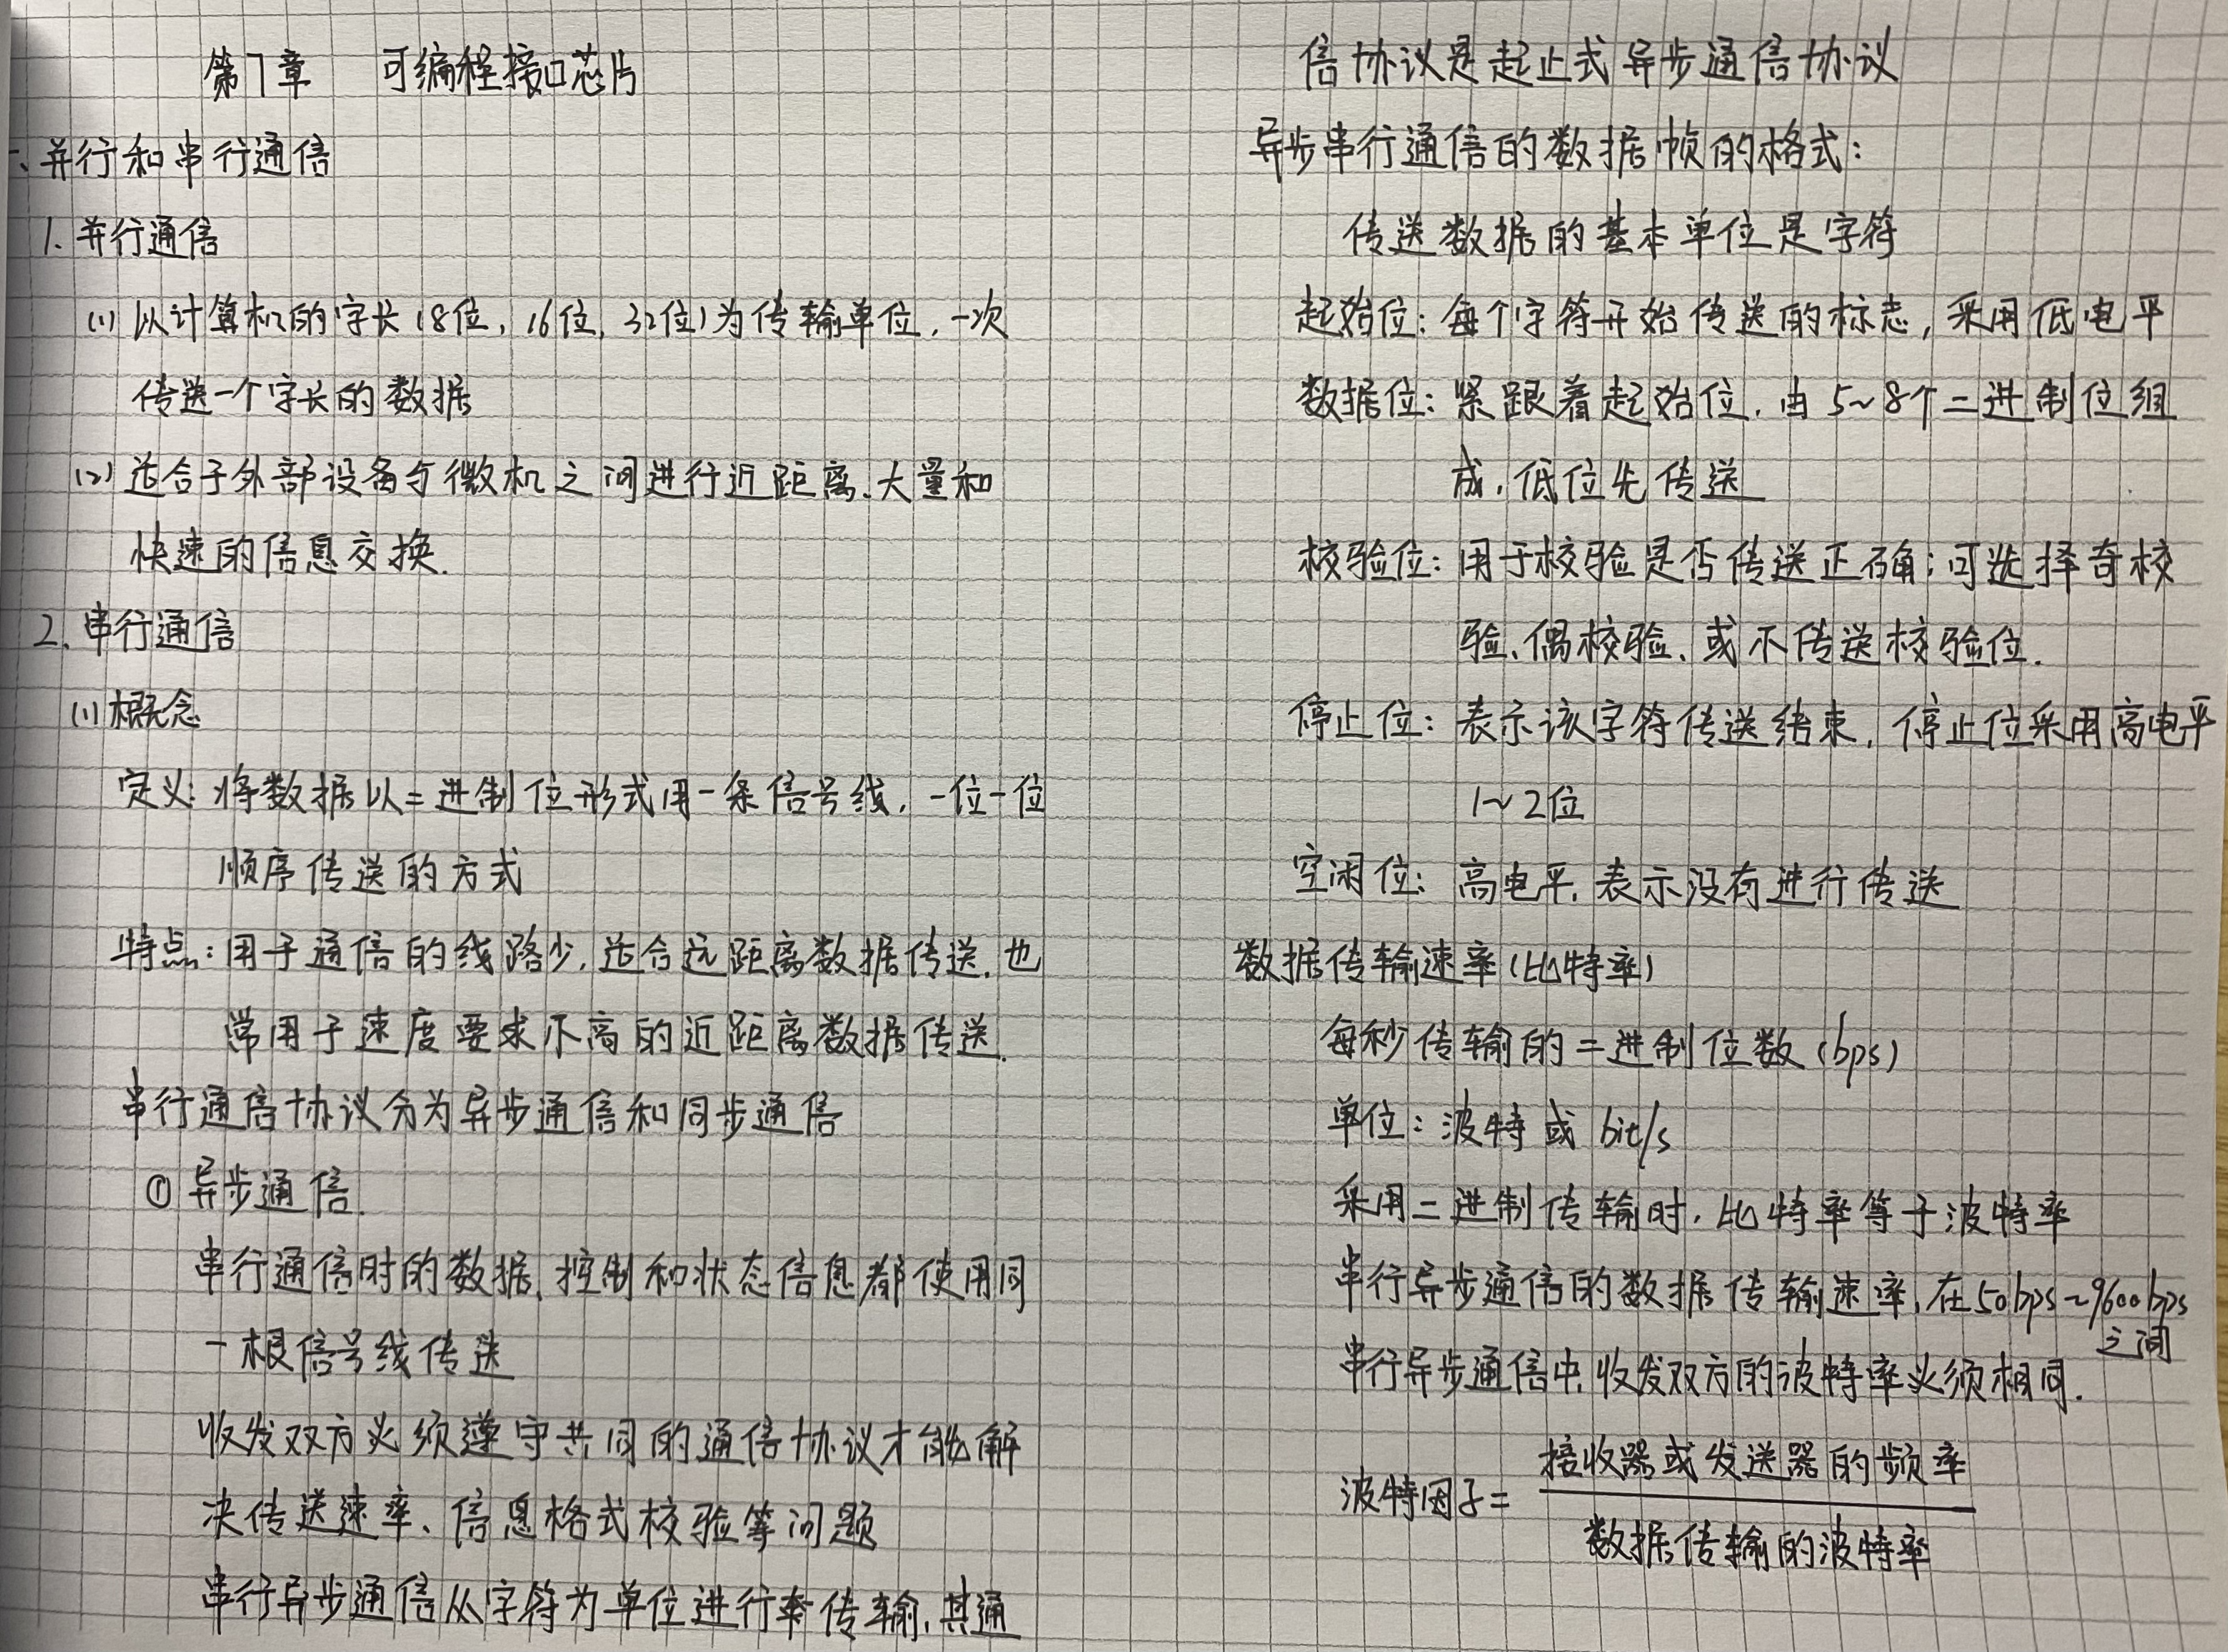 第7章 可编程接口芯片
一、并行和串行通信
1. 并行通信
(1) 以计算机的字长(8位, 16位, 32位)为传输单位, 一次
传送一个字长的数据
(2) 适合于外部设备与微机之间进行近距离、大量和
快速的信息交换.
2. 串行通信
(1) 概念
定义: 将数据以二进制位形式用一条信号线, 一位一位
顺序传送的方式
特点: 用于通信的线路少, 适合远距离数据传送, 也
常用于速度要求不高的近距离数据传送.
串行通信协议分为异步通信和同步通信
① 异步通信.
串行通信时的数据、控制和状态信息都使用同
一根信号线传送
收发双方必须遵守共同的通信协议才能解
决传送速率、信息格式校验等问题
串行异步通信从字符为单位进行传输, 其通
信协议是起止式异步通信协议
异步串行通信的数据帧的格式:
传送数据的基本单位是字符
起始位: 每个字符开始传送的标志, 采用低电平
数据位: 紧跟着起始位, 由5~8个二进制位组
成, 低位先传送
校验位: 用于校验是否传送正确; 可选择奇校
验、偶校验、或不传送校验位.
停止位: 表示该字符传送结束, 停止位采用高电平
1~2位
空闲位: 高电平, 表示没有进行传送
数据传输速率(比特率)
每秒传输的二进制位数(bps)
单位: 波特或 bit/s
采用二进制传输时, 比特率等于波特率
串行异步通信的数据传输速率, 在50bps~9600bps
之间
串行异步通信中, 收发双方的波特率必须相同.
波特因子= 接收器或发送器的频率
数据传输的波特率